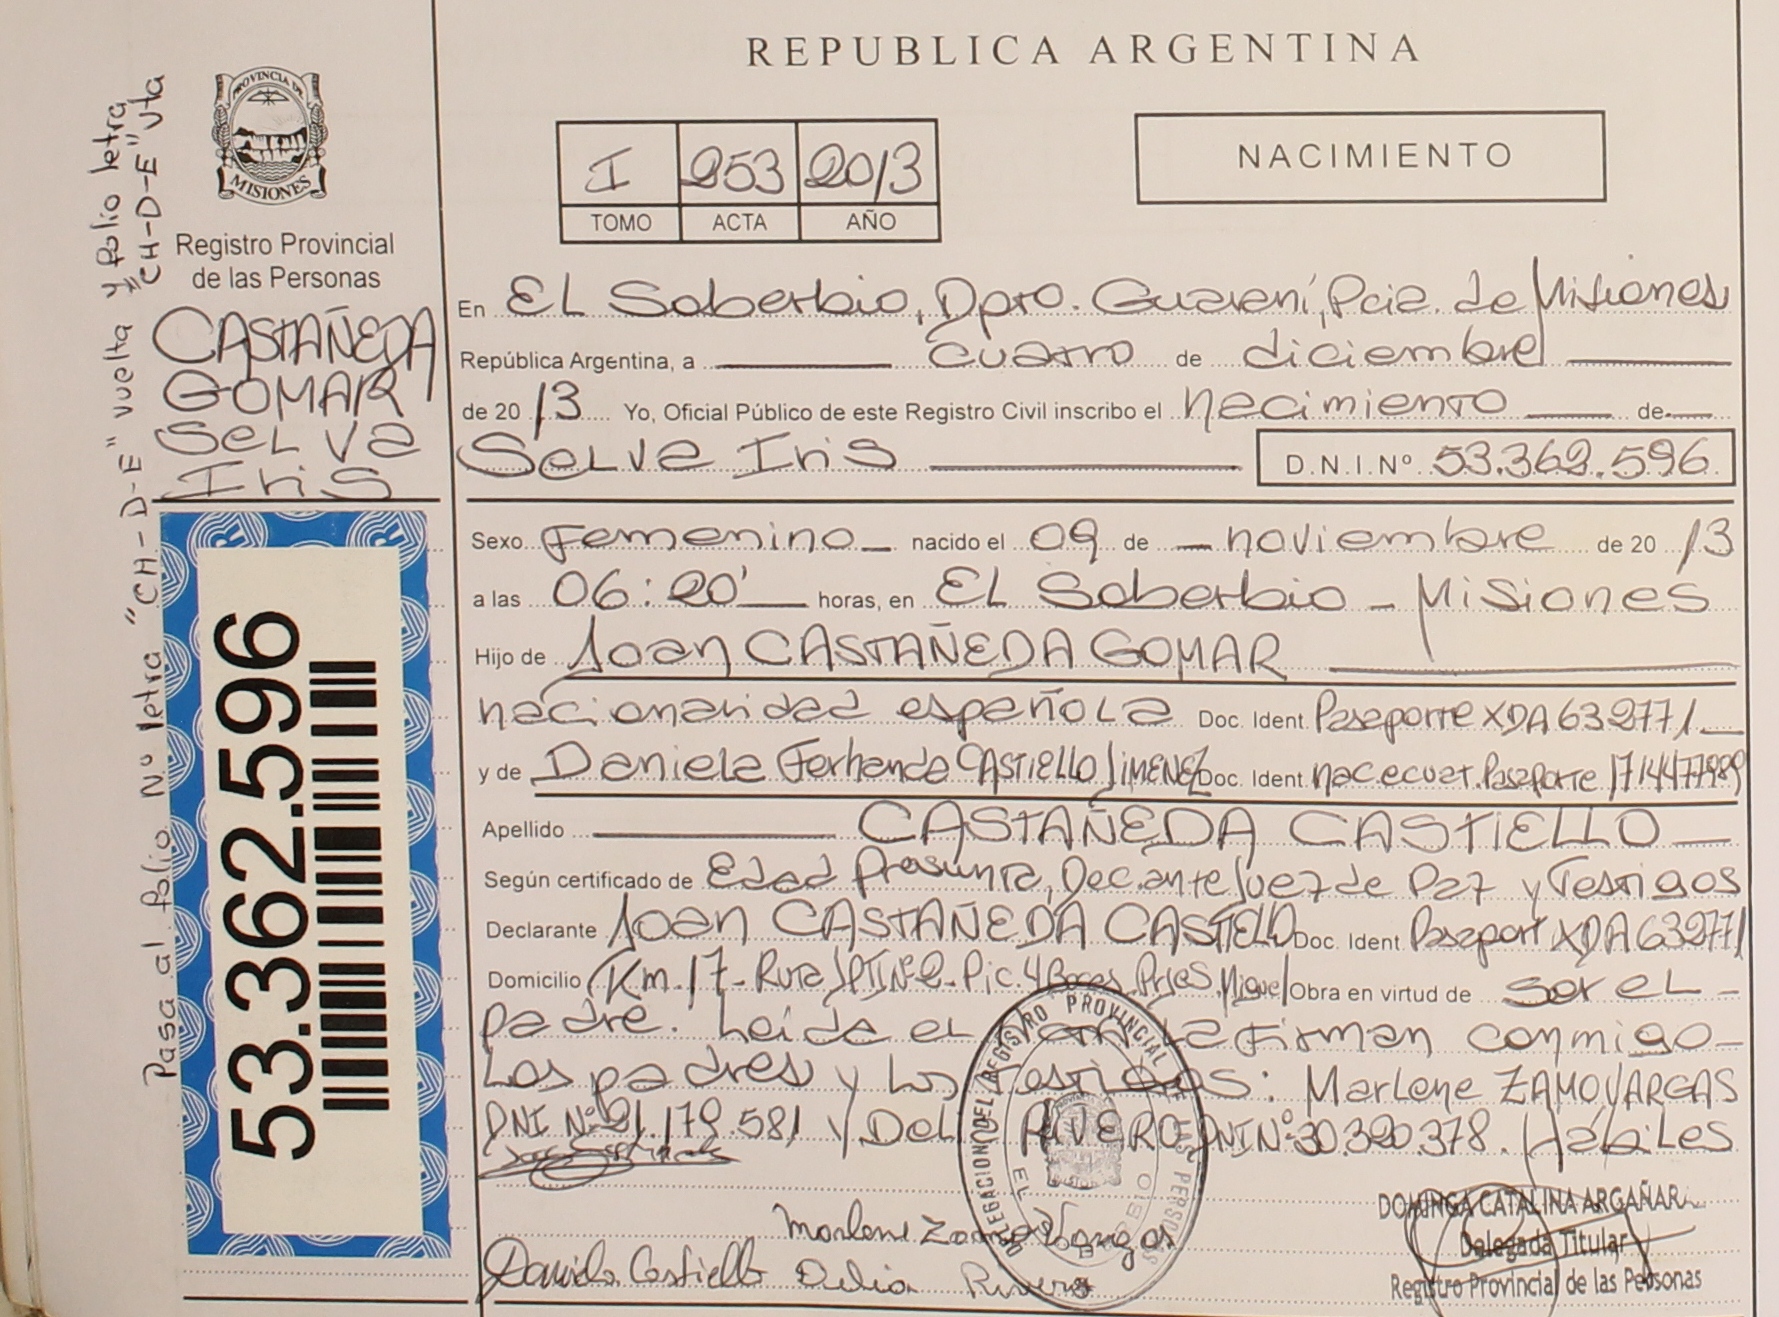 REPUBLICA ARGENTINA
PROVINCIA DE
MISIONES
Registro Provincial
de las Personas
I 253 2013
TOMO ACTA AÑO
NACIMIENTO
Pasa al Folio Nº letra "CH-D-E" vuelta y Folio letra
"CH-D-E" vta
CASTAÑEDA
GOMAR
Selva
Iris
53.362.596
En El Soberbio, Dpto. Guaraní, Pcia. de Misiones
República Argentina, a cuatro de diciembre
de 2013 Yo, Oficial Público de este Registro Civil inscribo el nacimiento de
Selva Iris D.N.I.Nº 53.362.596
Sexo Femenino nacido el 09 de noviembre de 2013
a las 06:20' horas, en El Soberbio - Misiones
Hijo de Joan CASTAÑEDA GOMAR
nacionalidad española Doc. Ident. Pasaporte XDA632771
y de Daniela Fernanda CASTIELLO JIMENEZ Doc. Ident. nac ecuat. Pasaporte 1714477989
Apellido CASTAÑEDA CASTIELLO
Según certificado de Edad Presunta, Dec. ante Juez de Paz y Testigos
Declarante Joan CASTAÑEDA Doc. Ident. Pasaport XDA632771
Domicilio Km.17- Ruta Pic. 4 Bocas Miguel Obra en virtud de ser el
padre. Leida el acta La Firman conmigo
Los padres y los Testigos: Marlene ZAMO VARGAS
DNI Nº 21.179.581 y Delia RIVERO DNI Nº 30.390.378. Hábiles
DELEGACION DEL REGISTRO PROVINCIAL DE LAS PERSONAS
EL SOBERBIO
Marlene Vargas
Daniela Castiello Delia Rivero
DOMINGA CATALINA ARGAÑARA
Delegada Titular
Registro Provincial de las Personas